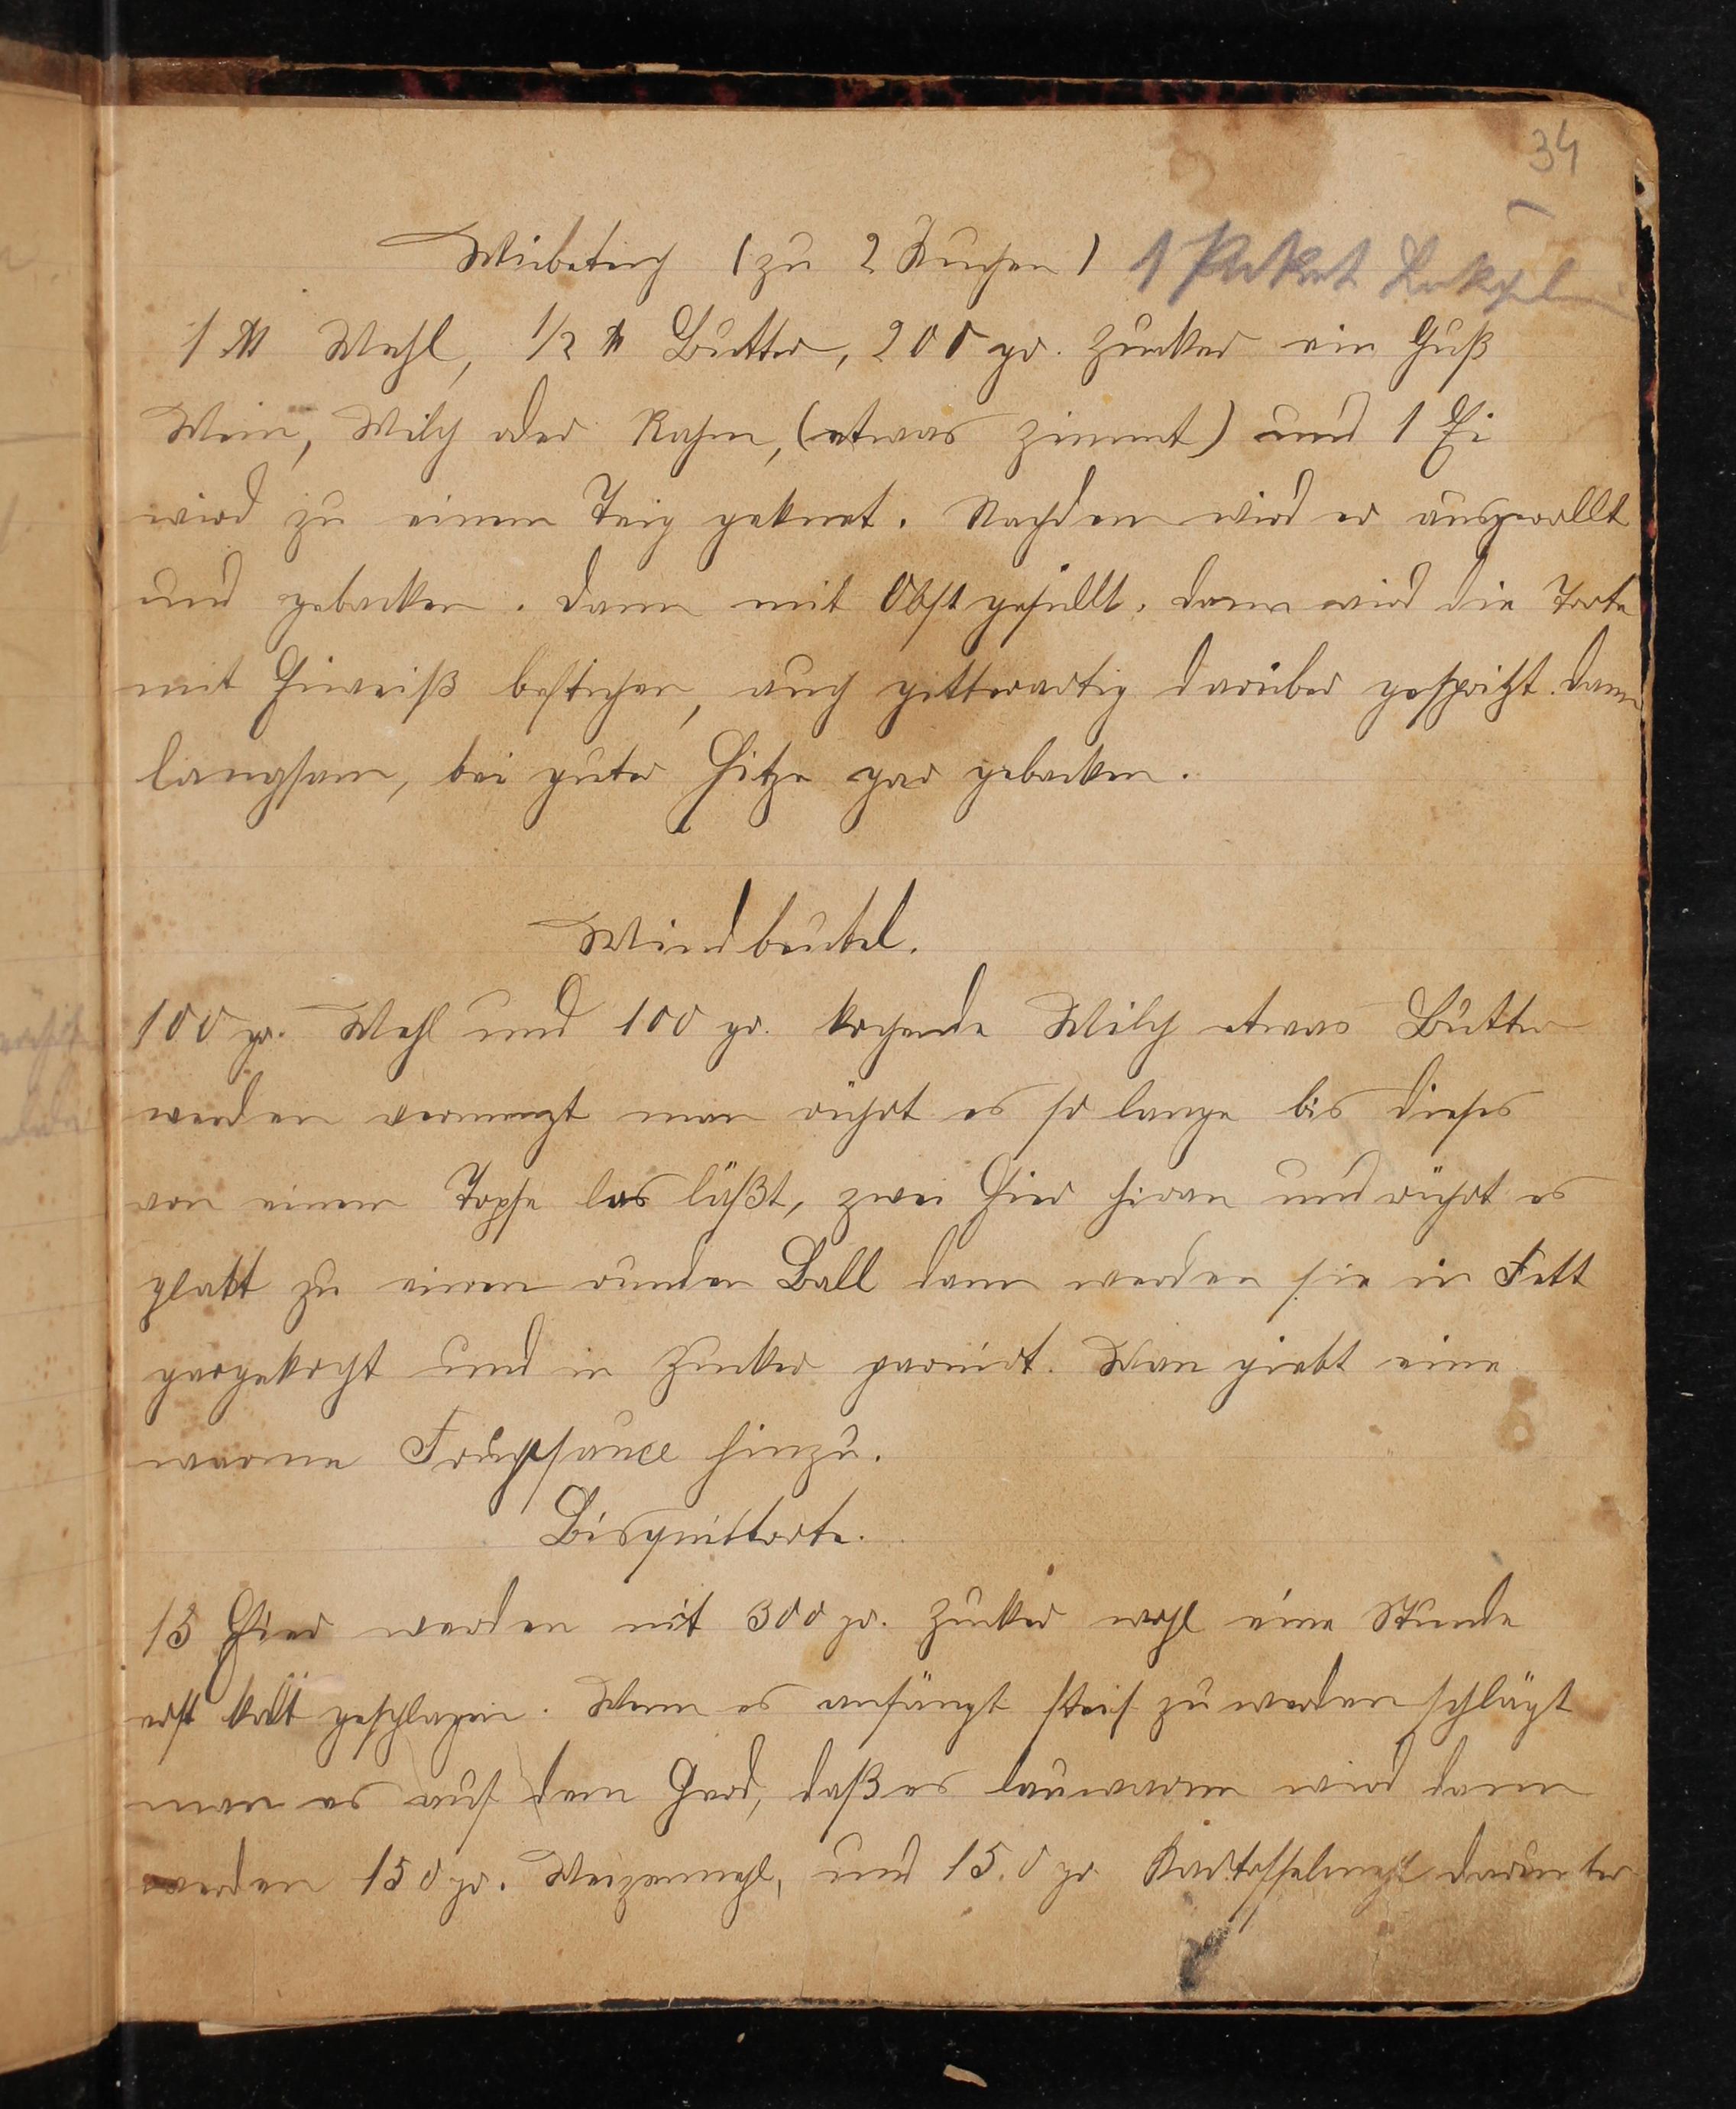 34
Mürbeteig (zu 2 Kuchen) 1 Paket
1 ℔ Mehl, 1/2 ℔ Butter, 200 gr. Zucker ein Guß
Wein, Milch oder Rahm, (etwas Zimmt) und 1 Ei
wird zu einem Teig geknet. Nachdem wird er ausgerollt
und gebacken. Dann mit Obst gefüllt. Dann wird die Torte
mit Eiweiß bestrichen, auch gitterartig darüber gespritzt. Dann
langsam, bei guter Hitze gar gebacken.
Windbeutel.
100 gr. Mehl und 100 gr. kochende Milch etwas Butter
werden vermengt man rührt es so lange bis dieses
von einem Topfe los läßt, zwei Eier hieran und rührt es
glatt zu einem runden Ball dann werden sie in Fett
gargekocht und in Zucker garnirt. Man giebt eine
warme Fruchtsauce hinzu.
Bisquittorte.
15 Eier werden mit 300 gr. Zucker wohl eine Stunde
erst kalt geschlagen. Wenn es anfängt steif zu werden schlägt
man es auf dem Herd, daß es lauwarm wird dann
werden 150 gr. Weizenmehl, und 150 gr Kartoffelmehl darunter